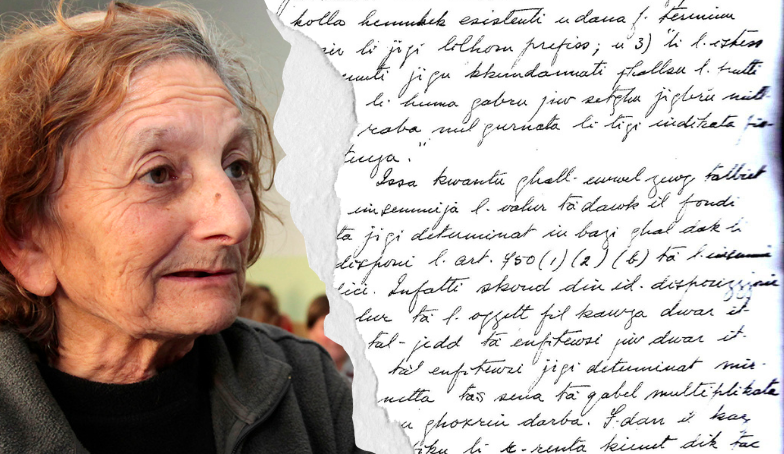 kollha hemmhekk esistenti u dana f. terminu
li jigi lilhom prefiss; u 3) "li l-istess
jigu kkundannati jhallsu l-frutti
li huma gabru jew setghu jigbru mill-
raba mil gurnata li tigi indikata fis-
Issa kwantu ghall-ewwel zewg talbiet
insemmija l-valur ta dawk il fondi
ta jigi determinat in bazi ghal dak li
disponi l. art. 750 (1) (2) (b) ta l.
lici. Infatti skond din id-disposizzjoni
lur ta l. oggett fil kawza dwar it-
tal-jedd ta enfitewsi jew dwar it-
tal enfitewsi jigi determinat mir-
netta tas sena ta gabel multiplikata
u ghoxrin darba. F'dan il kaz
li r-renta kienet dik tac